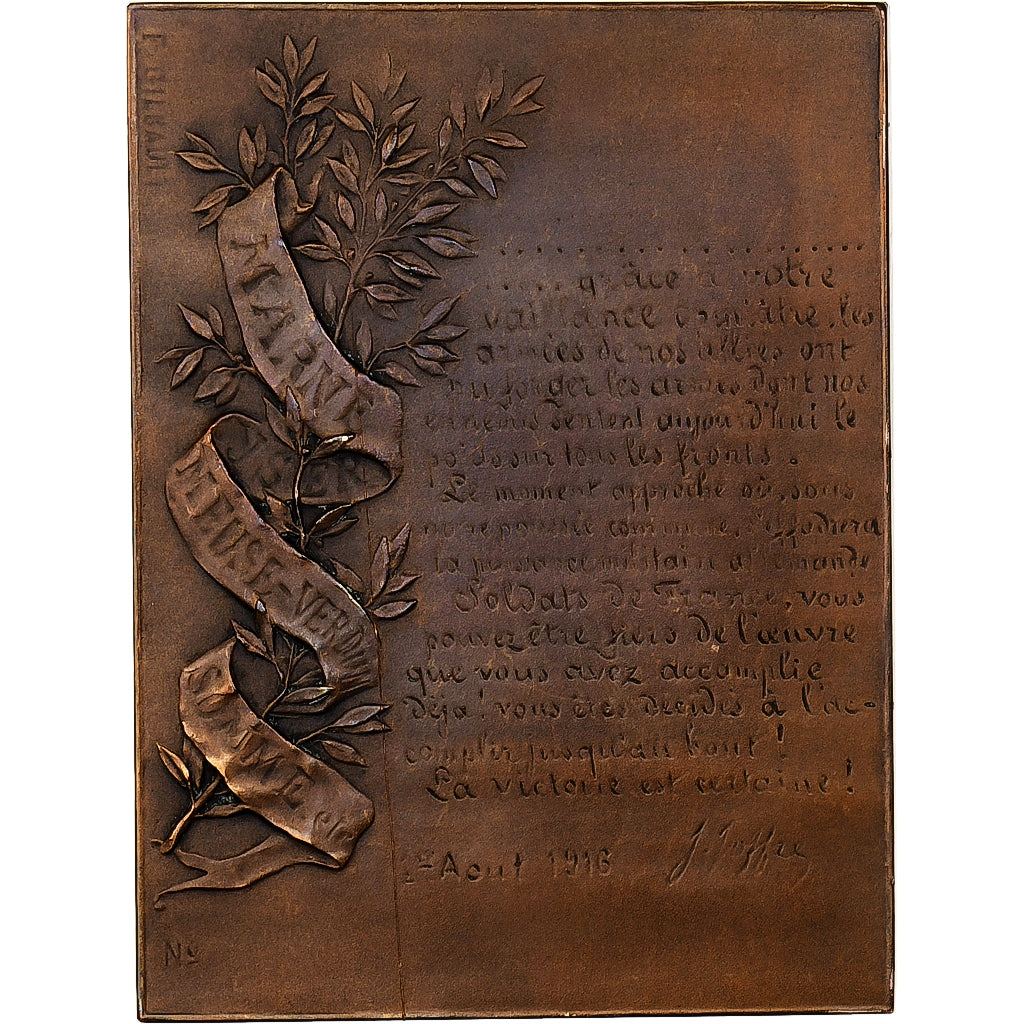 MARNE
YSER
MEUSE-VERDUN
SOMME
.....grâce à votre
vaillance opiniâtre, les
armées de nos alliés ont
pu forger les armes dont nos
ennemis sentent aujourd'hui le
poids sur tous les fronts.
Le moment approche où, sous
notre poussée commune, s'effondrera
la puissance militaire allemande
Soldats de France, vous
pouvez être fiers de l'œuvre
que vous avez accomplie
déjà! vous êtes décidés à l'ac-
complir jusqu'au bout!
La victoire est certaine!
1er Aout 1916
J. Joffre
No